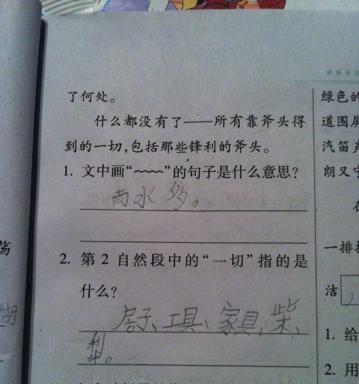 了何处。
什么都没有了——所有靠斧头得
到的一切,包括那些锋利的斧头。
1. 文中画“~~~~”的句子是什么意思?
雨水多。
2. 第2自然段中的“一切”指的是
什么?
房子、工具、家具、柴、
犁。
绿色的
道围屏
汽笛声
朗又宁
在
一排排
洁
1. 给
2. 用